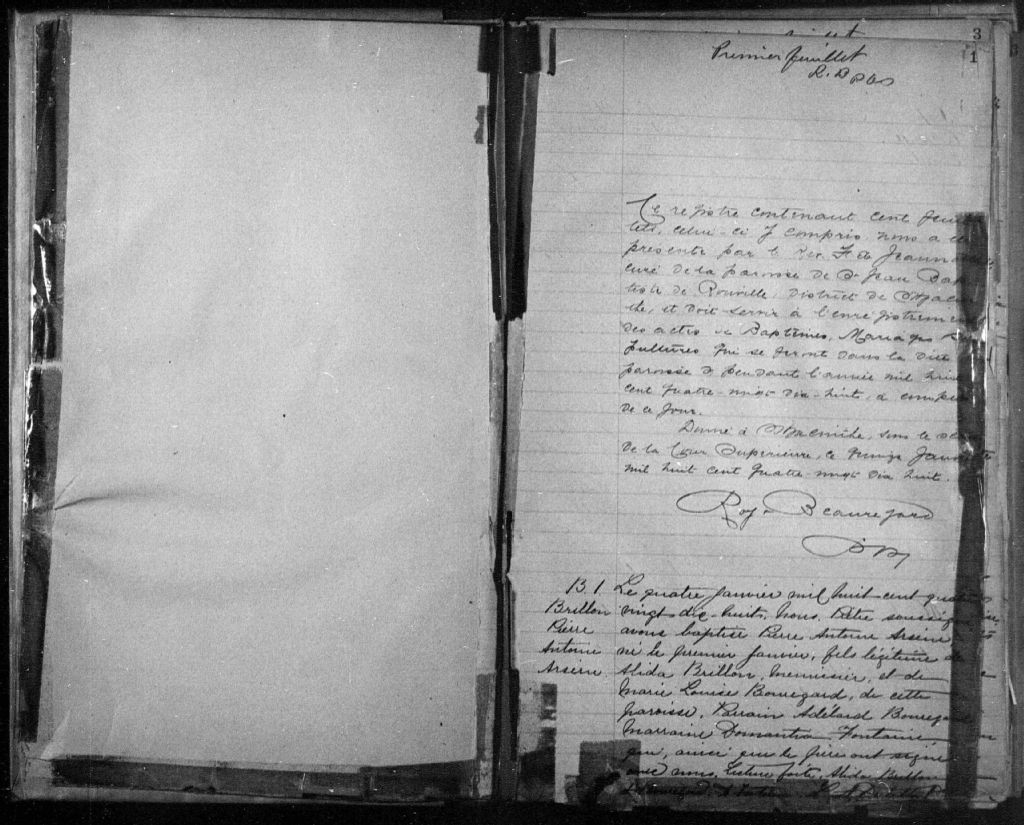 3
1
Premier feuillet
Ce registre contenant cent feuil
lets, celui-ci y compris, nous a été
présenté par le Rev.
curé de la paroisse de St Jean Bap
tiste de Rouville, District de St Hyacin
the, et doit servir à l'enregistrement
des actes de Baptêmes, Mariages
pultures qui se feront dans la dite
paroisse pendant l'année mil huit
cent quatre-vingt dix-huit, à compter
de ce jour.
Donné à St Hyacinthe, sous le
de la Cour Supérieure, ce
mil huit cent quatre-vingt dix huit.
Roy & Beauregard
B. 1. Le quatre janvier mil huit cent quatre
Brillon vingt dix-huit, nous Prêtre soussigné
Pierre avons baptisé Pierre Antoine Arsène
Antoine né le premier janvier, fils légitime de
Arsène Alida Brillon, menuisier, et de
Marie Louise Bouregard, de cette
paroisse. Parain Adélard Bouregard
Marraine Fontaine
qui, ainsi que le père ont signé
avec nous. Lecture faite. Alida Brillon